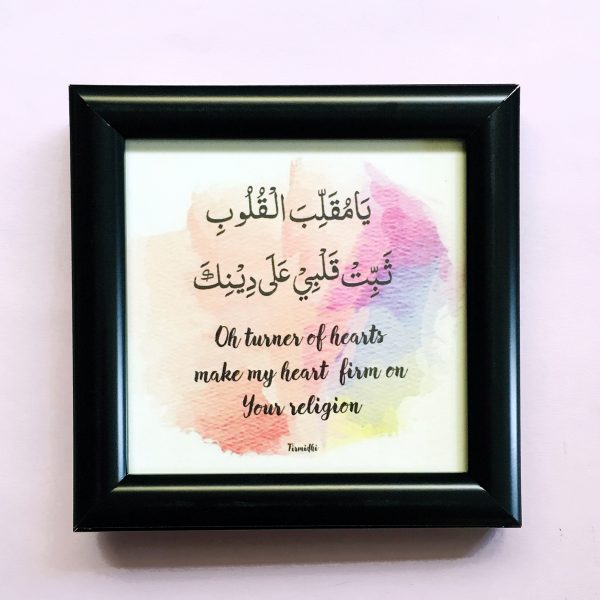 يَا مُقَلِّبَ الْقُلُوبِ
ثَبِّتْ قَلْبِيْ عَلَى دِيْنِكَ
Oh turner of hearts
make my heart firm on
Your religion
Tirmidhi